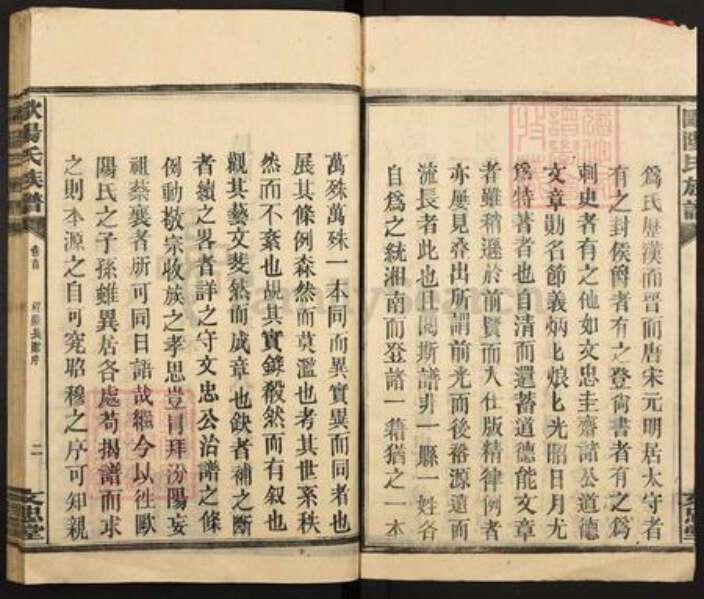 爲氏歷漢而晉而唐宋元明居太守者
有之封侯爵者有之登尚書者有之爲
刺史者有之他如文忠圭齋諸公道德
文章勛名節義炳匕烺匕光昭日月尤
爲特著者也自清而還蓄道德能文章
者雖稍遜於前賢而入仕版精律例者
亦屢見叠出所謂前光而後裕源遠而
流長者此也且閱斯譜非一縣一姓各
自爲之統湘南而登諸一籍猶之一本
歐陽氏族譜
卷首
二
文思堂
萬殊萬殊一本同而異實異而同者也
展其條例森然而莫濫也考其世系秩
然而不紊也覘其實錄殺然而有叙也
觀其藝文斐然而成章也缺者補之斷
者續之畧者詳之守文忠公治譜之條
例動敬宗收族之孝思豈肯拜汾陽妄
祖蔡襄者所可同日語哉繼今以徃歐
陽氏之子孫雖異居各處苟揭譜而求
之則本源之自可究昭穆之序可知親